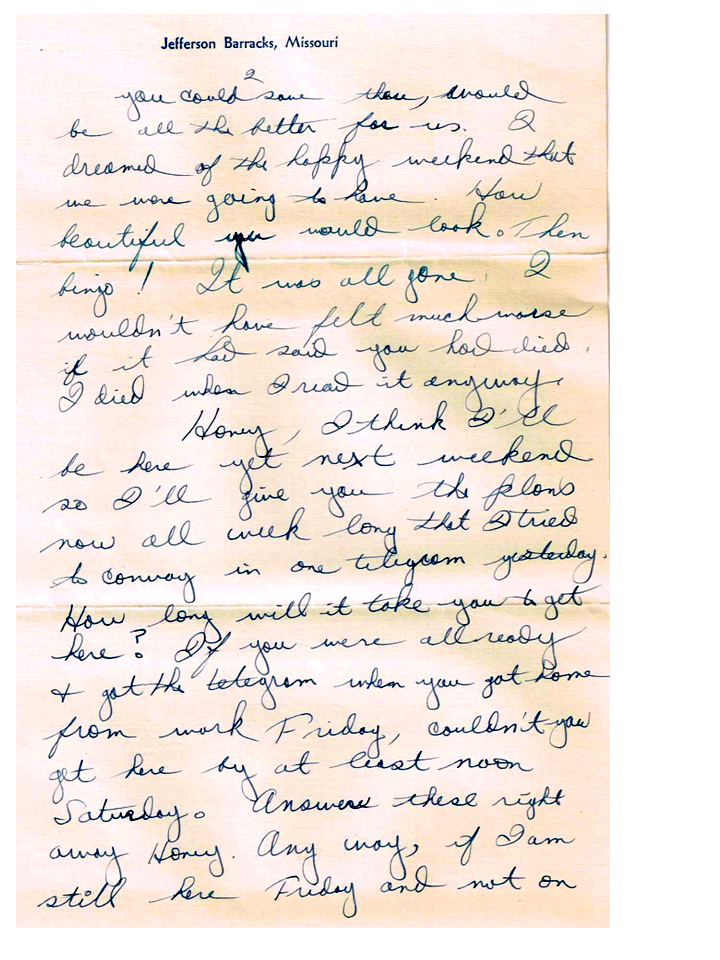 Jefferson Barracks, Missouri
2
you could save then, would
be all the better for us. I
dreamed of the happy weekend that
we were going to have. How
beautiful you would look. Then
bingo! It was all gone. I
wouldn't have felt much worse
if it had said you had died.
I died when I read it anyway.
Honey, I think I'll
be here yet next weekend
so I'll give you the plans
now all week long that I tried
to convay in one telegram yesterday.
How long will it take you to get
here? If you were all ready
& got the telegram when you got home
from work Friday, couldn't you
get here by at least noon
Saturday. Answere these right
away Honey. Any way, if I am
still here Friday and not on